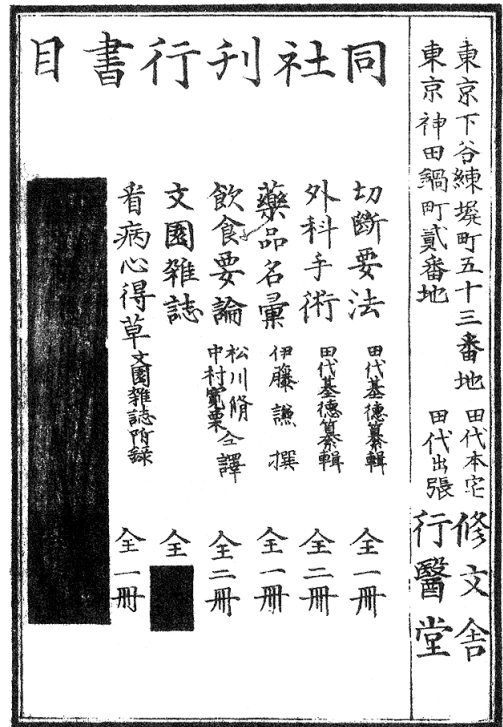 東京下谷練塀町五十三番地 田代本宅 修文舎
東京神田鍋町貳番地 田代出張 行醫堂
同社刋行書目
切斷要法 田代基德纂輯 全一冊
外科手術 田代基德纂輯 仝二冊
藥品名彙 伊藤謙撰 仝一冊
飲食要論 松川脩 中村寛栗 仝譯 仝二冊
文園雑誌 仝
看病心得草 文園雑誌附録 仝一冊